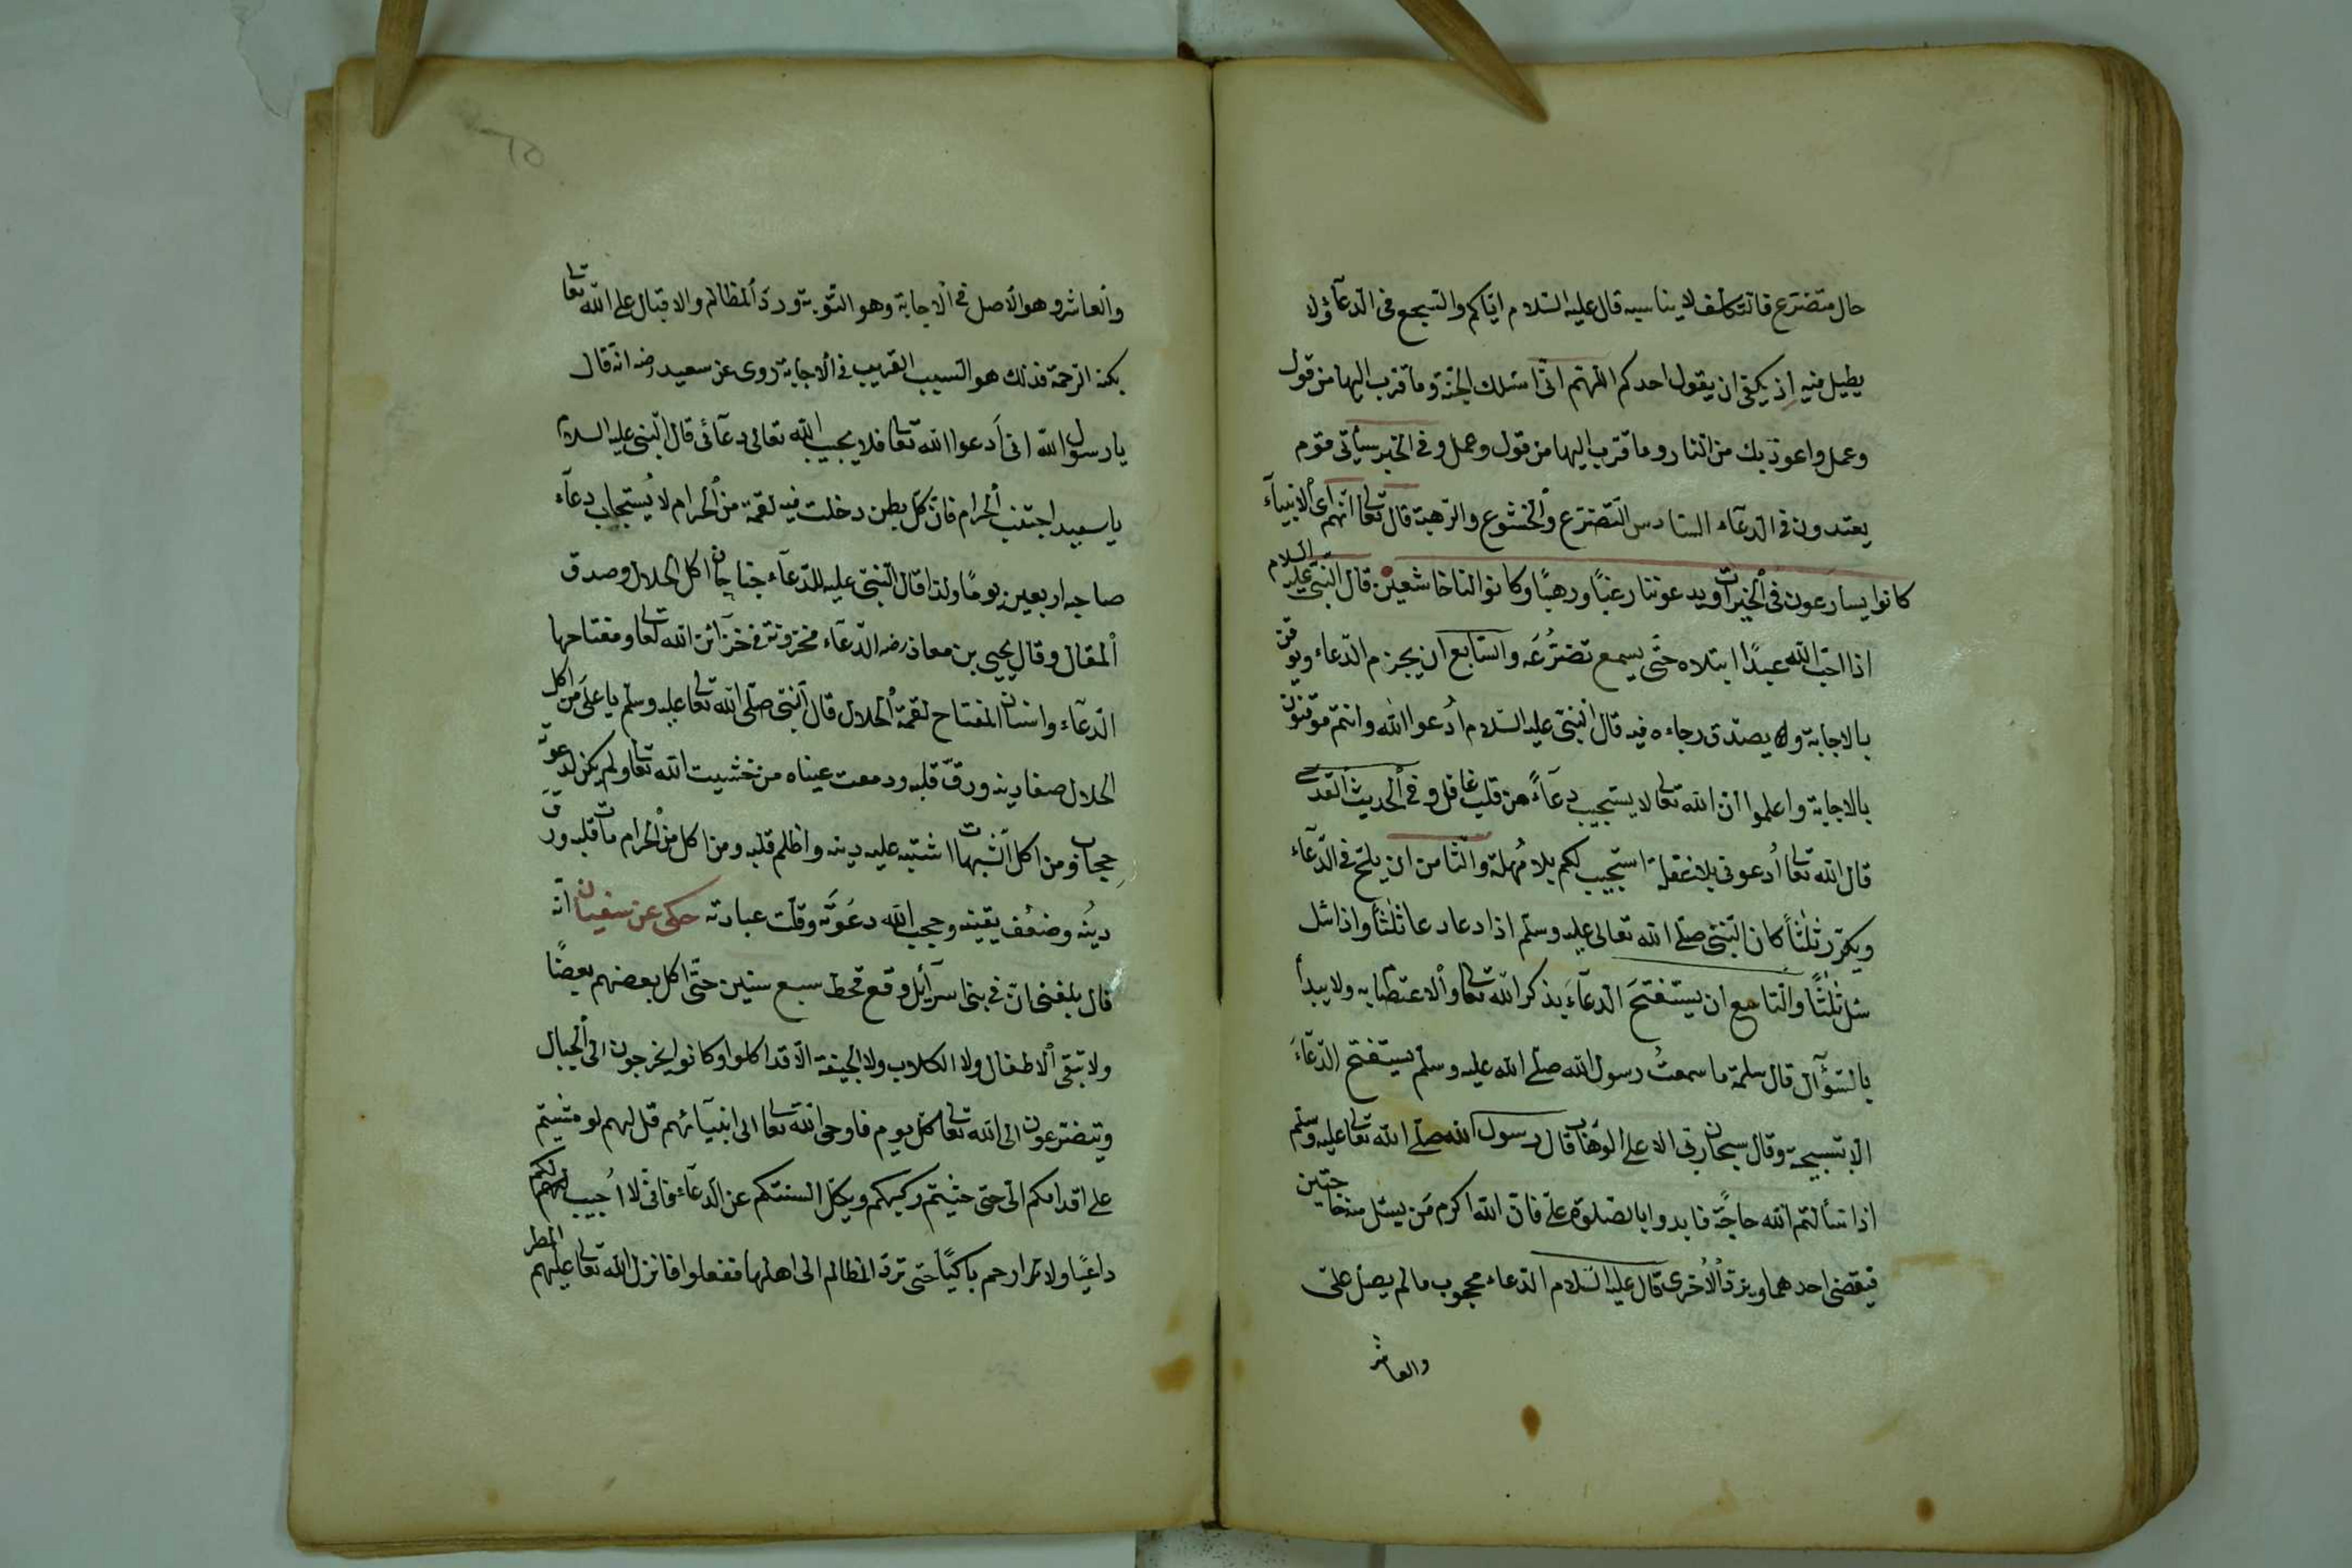 حال متضرع فان التكلف لا يناسبه قال عليه السلام اياكم والسجع فى الدعآء ولا
يطيل فيه اذ يكفى ان يقول احدكم اللهم انى اسئلك الجنة وما قرب اليها من قول
وعمل واعوذ بك من النار وما قرب اليها من قول وعمل وفى الخبر سيأتى قوم
يعتدون فى الدعآء السادس التضرع والخشوع والرهبة قال تعالى انهم اى الانبيآء
كانوا يسارعون فى الخيرات ويدعوننا رغبًا ورهبًا وكانوا لنا خاشعين قال النبى عليه السلام
اذا احب الله عبدًا ابتلاه حتى يسمع تضرُّعَه والسابع ان يجزم الدعاء ويوقن
بالاجابة ويصدق رجاءه فيه قال النبى عليه السلام اُدعوا الله وانتم موقنون
بالاجابة واعلموا ان الله تعالى لا يستجيب دعآءً من قلب غافل وفى الحديث القدسى
قال الله تعالى اُدعونى بلا غفلة استجيب لكم بلا مُهلة والثامن ان يلح فى الدعآء
ويكرر ثلثًا كان النبى صلى الله تعالى عليه وسلم اذا دعا دعا ثلثًا واذا سئل
سئل ثلثًا والتاسع ان يستفتحَ الدعآءَ بذكر الله تعالى والاعتصام به ولا يبدأ
بالسؤآل قال سلمة ما سمعتُ رسول الله صلى الله عليه وسلم يستفتح الدعآءَ
الا بتسبيحة وقال سبحان ربى الاعلى الوهاب قال رسول الله صلى الله تعالى عليه وسلم
اذا سألتم الله حاجةً فابدوا بالصلوة على فان الله اكرم مَن يسئل منه حاجتين
فيقضى احدهما ويرد الاُخرى قال عليه السلام الدعاء محجوب ما لم يصل على
والعاشر
والعاشر وهو الاصل فى الاجابة وهو التوبة ورد المظالم والاقبال على الله تعالى
بكنه الرحمة فذلك هو السبب القريب فى الاجابة روى عن سعيد رضه انه قال
يا رسول الله انى اَدعوا الله تعالى فلا يجيب الله تعالى دعآئى قال النبى عليه السلام
يا سعيد اجتنب الحرام فان كل بطن دخلت فيه لقمة من الحرام لا يُستجاب دعآء
صاحبه اربعين يومًا ولذا قال النبى عليه للدعآء جناحان اكل الحلال وصدق
المقال وقال يحيى بن معاذ رضه الدعآء مخزونة فى خزآئن الله تعالى ومفتاحها
الدعآء واسنان المفتاح لقمة الحلال قال النبى صلى الله تعالى عليه وسلم يا على من اكل
الحلال صفا دينه ورق قلبه ودمعت عيناه من خشيت الله تعالى ولم يكن لدعوته
حجاب ومن اكل الشبهات اشتبه عليه دينه واظلم قلبه ومن اكل من الحرام مات قلبه ورق
دينُه وضعُف يقينه وحجب الله دعوَته وقلت عبادته حكى عن سفيان انه
قال بلغنى ان فى بنى اسرآئل وقع قحط سبع سنين حتى اكل بعضهم بعضًا
ولا تبقى الاطفال ولا الكلاب ولا الجيفة الا قد اكلوا وكانوا يخرجون الى الجبال
ويتضرعون الى الله تعالى كل يوم فاوحى الله تعالى الى انبيآئهم قل لهم لو مشيتم
على اقدامكم الى حتى حثيتم ركبكم ويكل السنتكم عن الدعآء فانى لا اُجيب لكم
داعيًا ولا ارحم باكيًا حتى ترد المظالم الى اهلها ففعلوا فانزل الله تعالى عليهم المطر